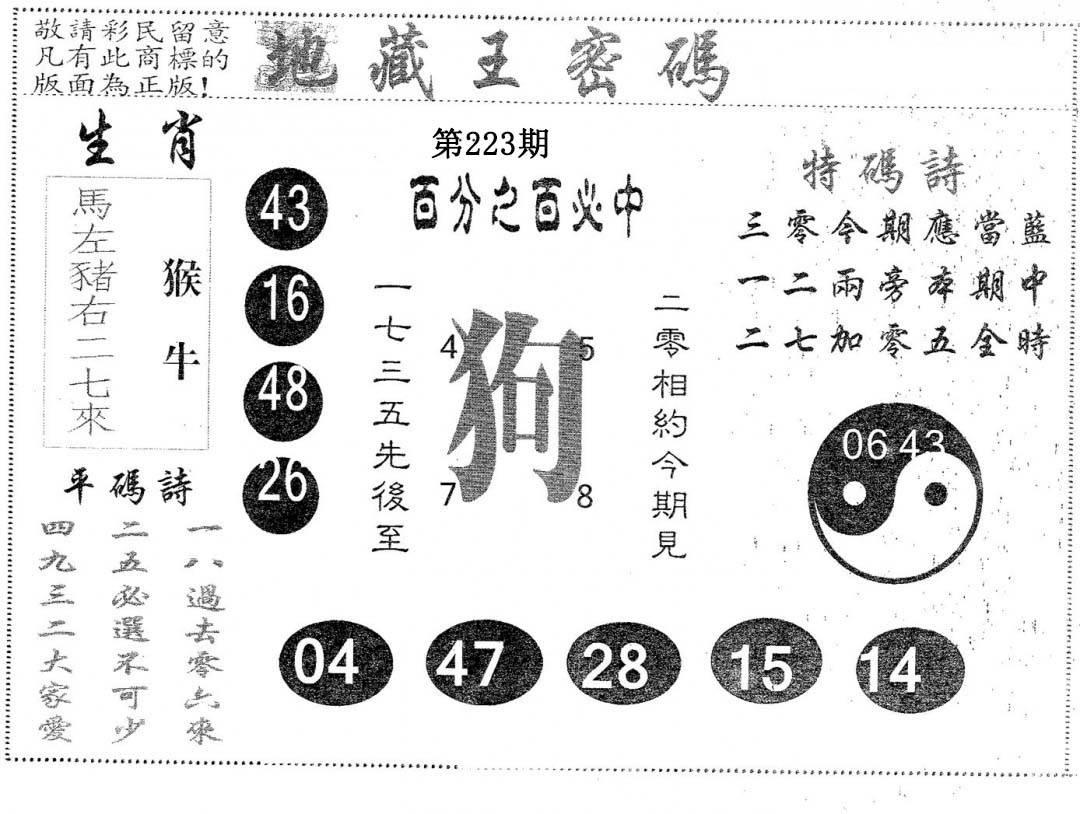 敬請彩民留意
凡有此商標的
版面為正版！
地藏王密碼
第223期
百分之百必中
生肖
馬左豬右二七來
猴牛
43
16
48
26
一七三五先後至
狗
4
5
7
8
二零相約今期見
特碼詩
三零今期應當藍
一二兩旁本期中
二七加零五全時
06 43
平碼詩
一八過去零六來
二五必選不可少
四九三二大家愛
04
47
28
15
14